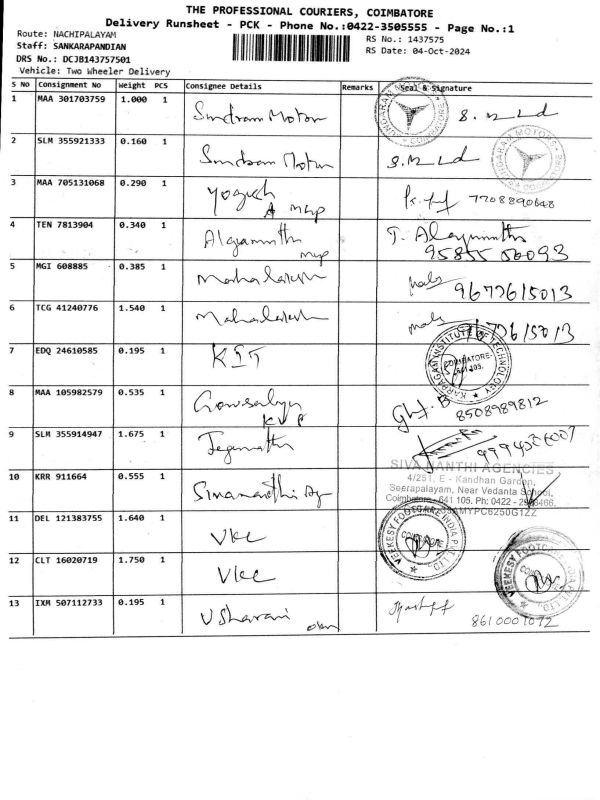 THE PROFESSIONAL COURIERS, COIMBATORE
Delivery Runsheet - PCK - Phone No.:0422-3505555 - Page No.:1
Route: NACHIPALAYAM
RS No.: 1437575
Staff: SANKARAPANDIAN
RS Date: 04-Oct-2024
DRS No.: DCJB143757501
Vehicle: Two Wheeler Delivery
S No Consignment No Weight PCS Consignee Details Remarks Seal & Signature
1 MAA 301703759 1.000 1 Sundram Motor
2 SLM 355921333 0.160 1 Sundram Motor
3 MAA 705131068 0.290 1 Yogesh 7708890648
4 TEN 7813904 0.340 1 T.
5 MGI 608885 0.385 1 Mahalaksh 9677615013
6 TCG 41240776 1.540 1 Mahalaksh
KARPAGAM INSTITUTE OF TECHNOLOGY
COIMBATORE-
641 105.
7 EDQ 24610585 0.195 1 KIT
8 MAA 105982579 0.535 1 8508989812
9 SLM 355914947 1.675 1 Jeganath
SIVA NANTHI AGENCIES
4/251, E - Kandhan Garden,
Seerapalayam, Near Vedanta School,
Coimbatore - 641 105. Ph: 0422 -
10 KRR 911664 0.555 1
11 DEL 121383755 1.640 1 VKC
VEEKESY FOOTCARE INDIA PVT. LTD.
12 CLT 16020719 1.750 1 VKC
VEEKESY FOOTCARE INDIA PVT. LTD.
13 IXM 507112733 0.195 1 U Sharani